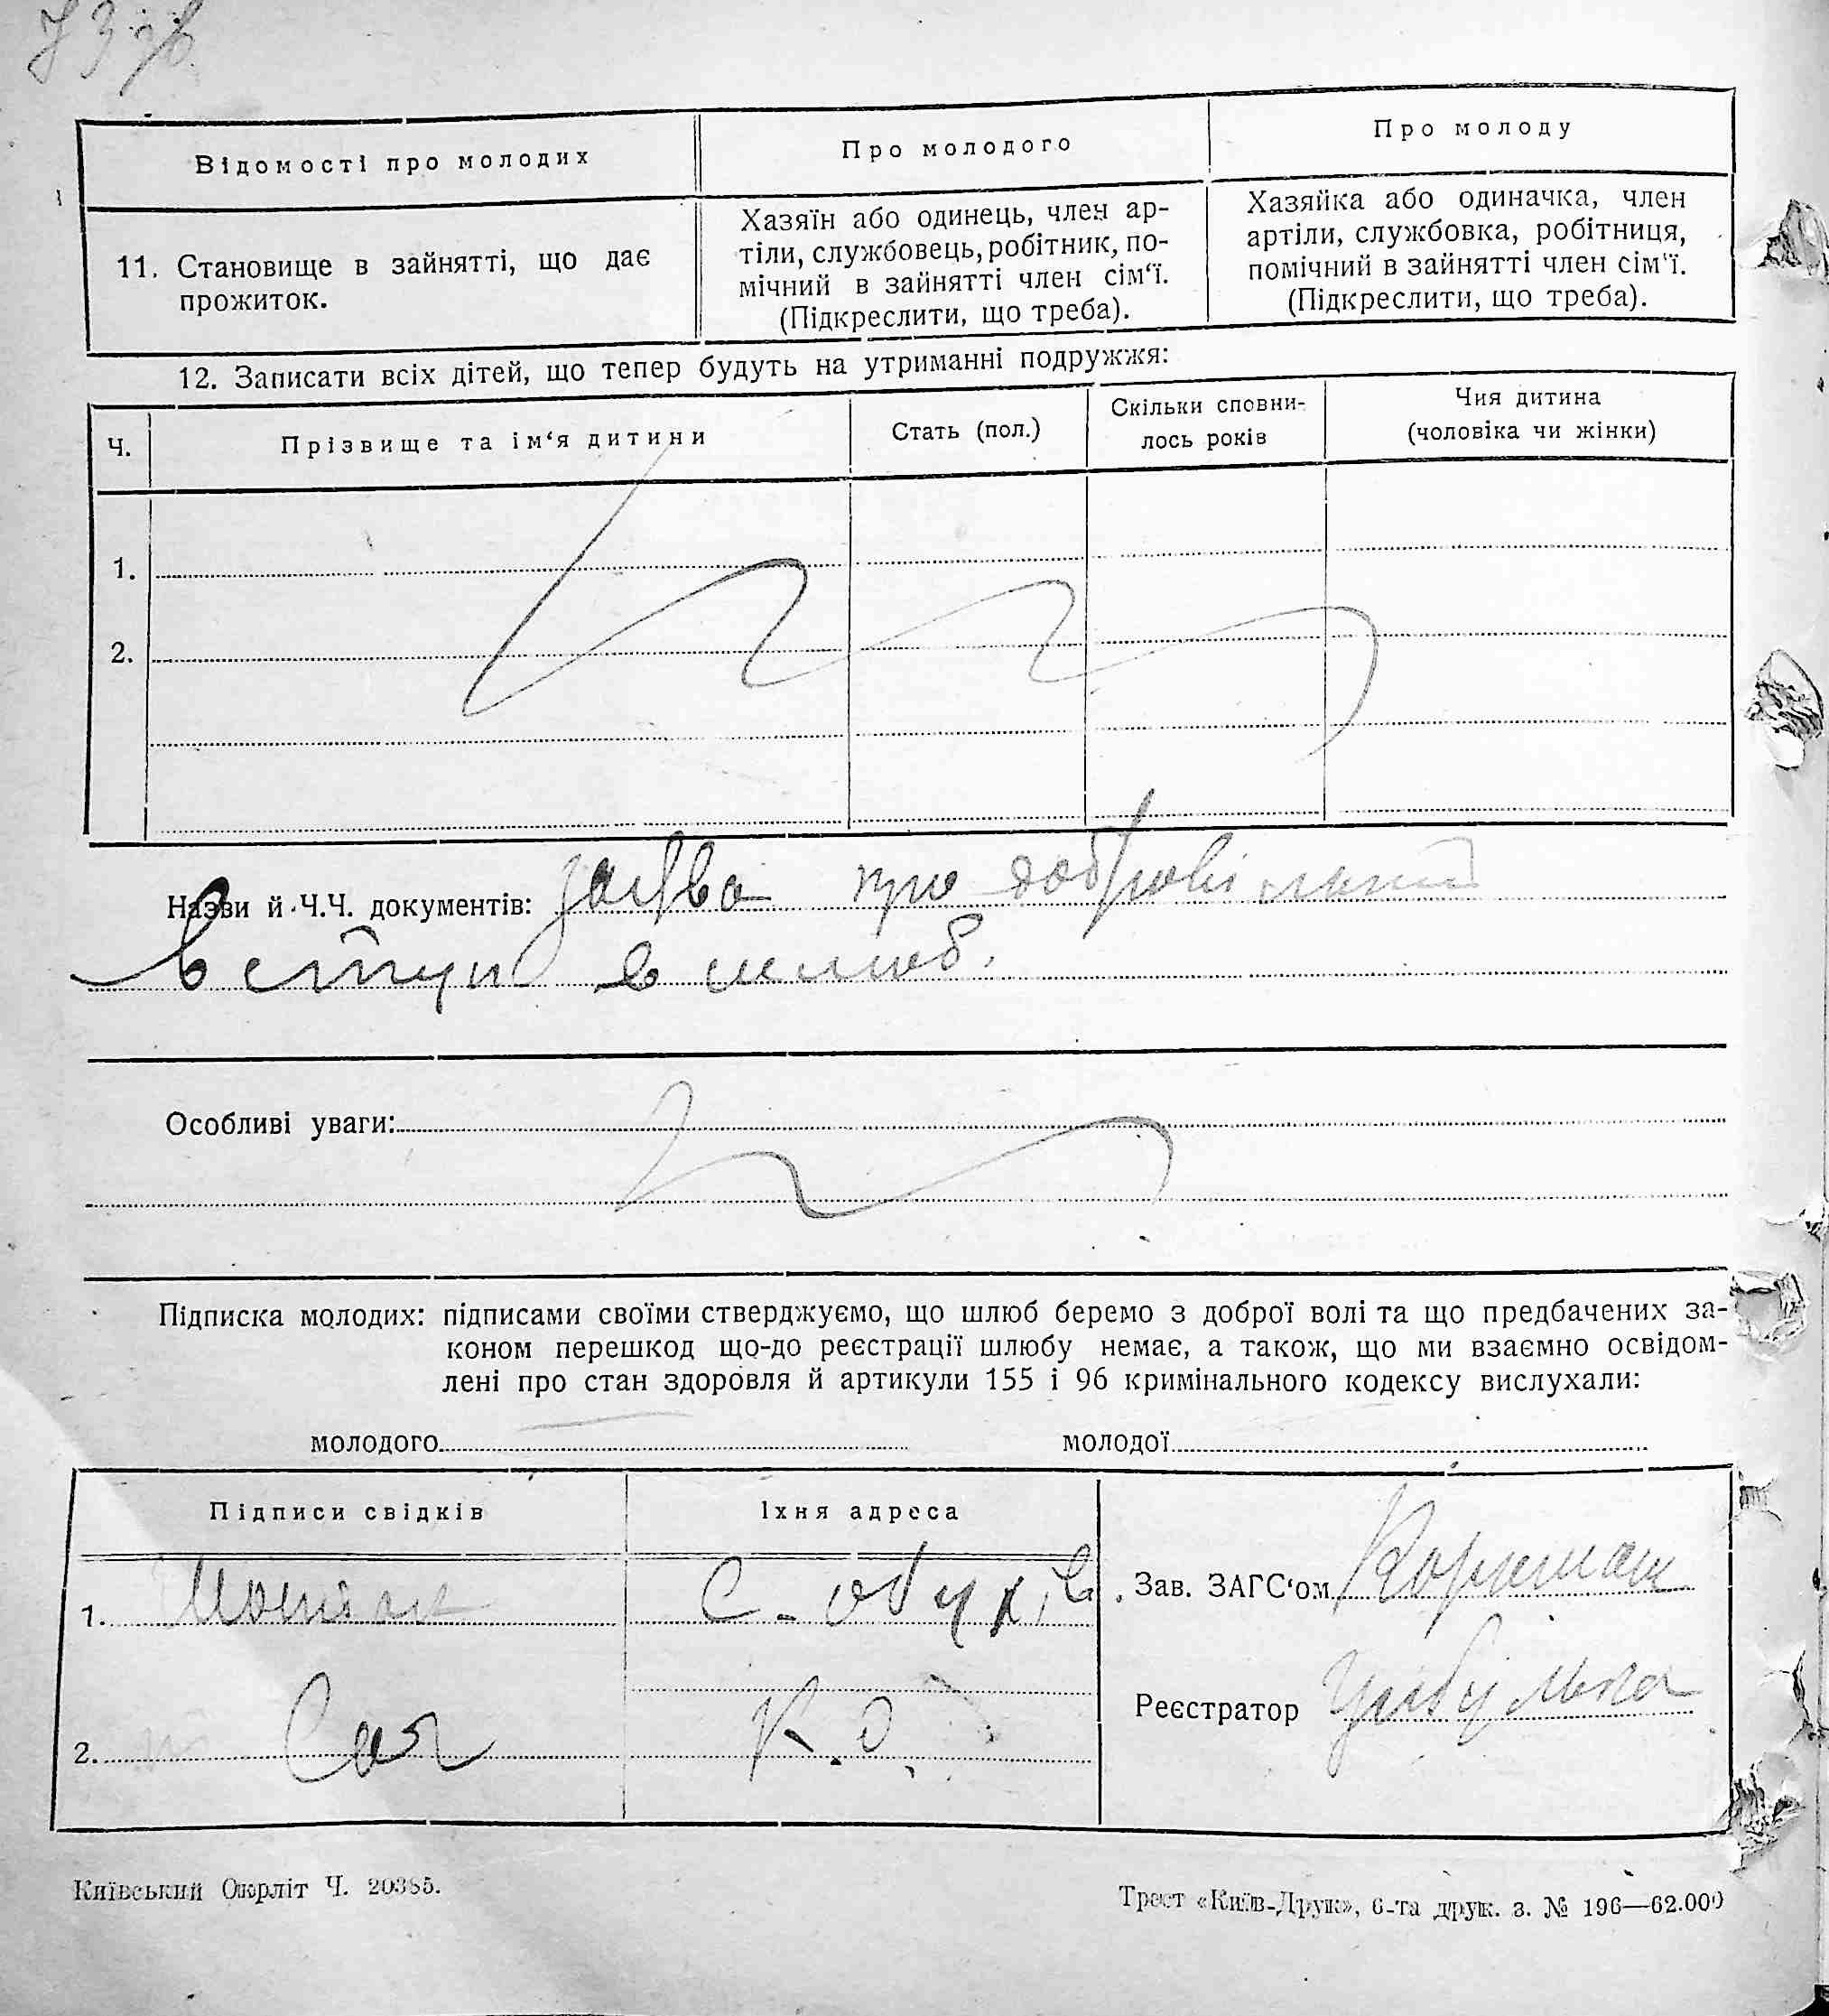 73 зв.
Відомості про молодих
Про молодого
Про молоду
11. Становище в зайнятті, що дає
прожиток.
Хазяїн або одинець, член ар-
тіли, службовець, робітник, по-
мічний в зайнятті член сім'ї.
(Підкреслити, що треба).
Хазяйка або одиначка, член
артіли, службовка, робітниця,
помічний в зайнятті член сім'ї.
(Підкреслити, що треба).
12. Записати всіх дітей, що тепер будуть на утриманні подружжя:
Ч.
Прізвище та ім'я дитини
Стать (пол.)
Скільки сповни-
лось років
Чия дитина
(чоловіка чи жінки)
1.
2.
Назви й Ч.Ч. документів: заява про добровільний
вступ в шлюб.
Особливі уваги:
Підписка молодих: підписами своїми стверджуємо, що шлюб беремо з доброї волі та що предбачених за-
коном перешкод що-до реєстрації шлюбу немає, а також, що ми взаємно освідом-
лені про стан здоровля й артикули 155 і 96 кримінального кодексу вислухали:
молодого
молодої
Підписи свідків
Їхня адреса
1.
с. Обухів
Зав. ЗАГС'ом
2.
Реєстратор Цибулька
Київський Окрліт Ч. 20385.
Трест «Київ-Друк», 6-та друк. з. № 196—62.000